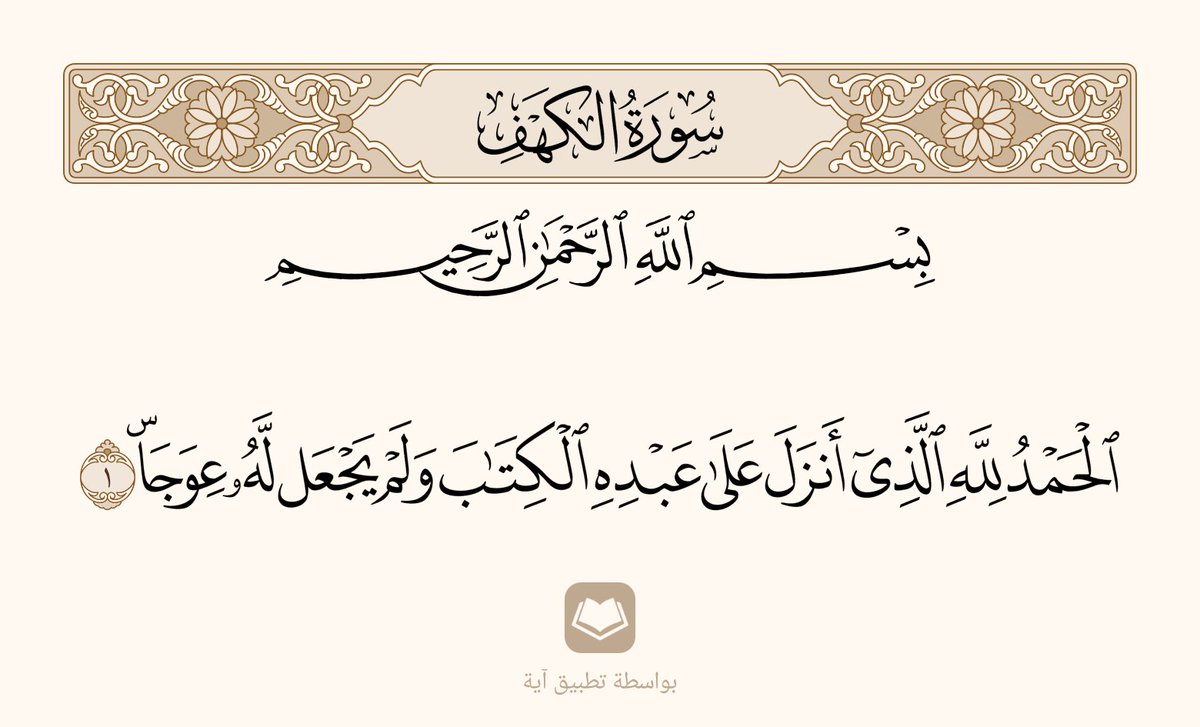 سُورَةُ الكَهْفِ
بِسْمِ ٱللَّهِ ٱلرَّحْمَٰنِ ٱلرَّحِيمِ
ٱلْحَمْدُ لِلَّهِ ٱلَّذِىٓ أَنزَلَ عَلَىٰ عَبْدِهِ ٱلْكِتَـٰبَ وَلَمْ يَجْعَل لَّهُۥ عِوَجَاۜ ١
بواسطة تطبيق آية